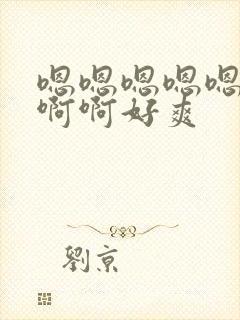 嗯嗯嗯嗯嗯
啊啊好爽
劉京